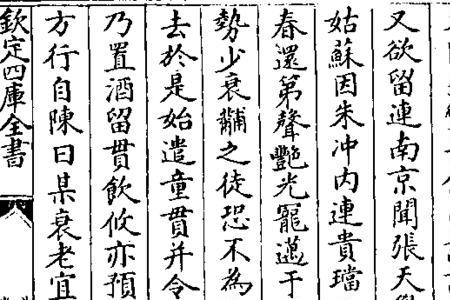 又欲留連南京聞張天
姑蘇因朱冲内連貴璫
春還第聲艷光寵邁于
勢少衰黼之徒恐不為
去於是始遣童貫并令
乃置酒留貫飲攸亦預
方行自陳曰某衰老宜
欽定四庫全書